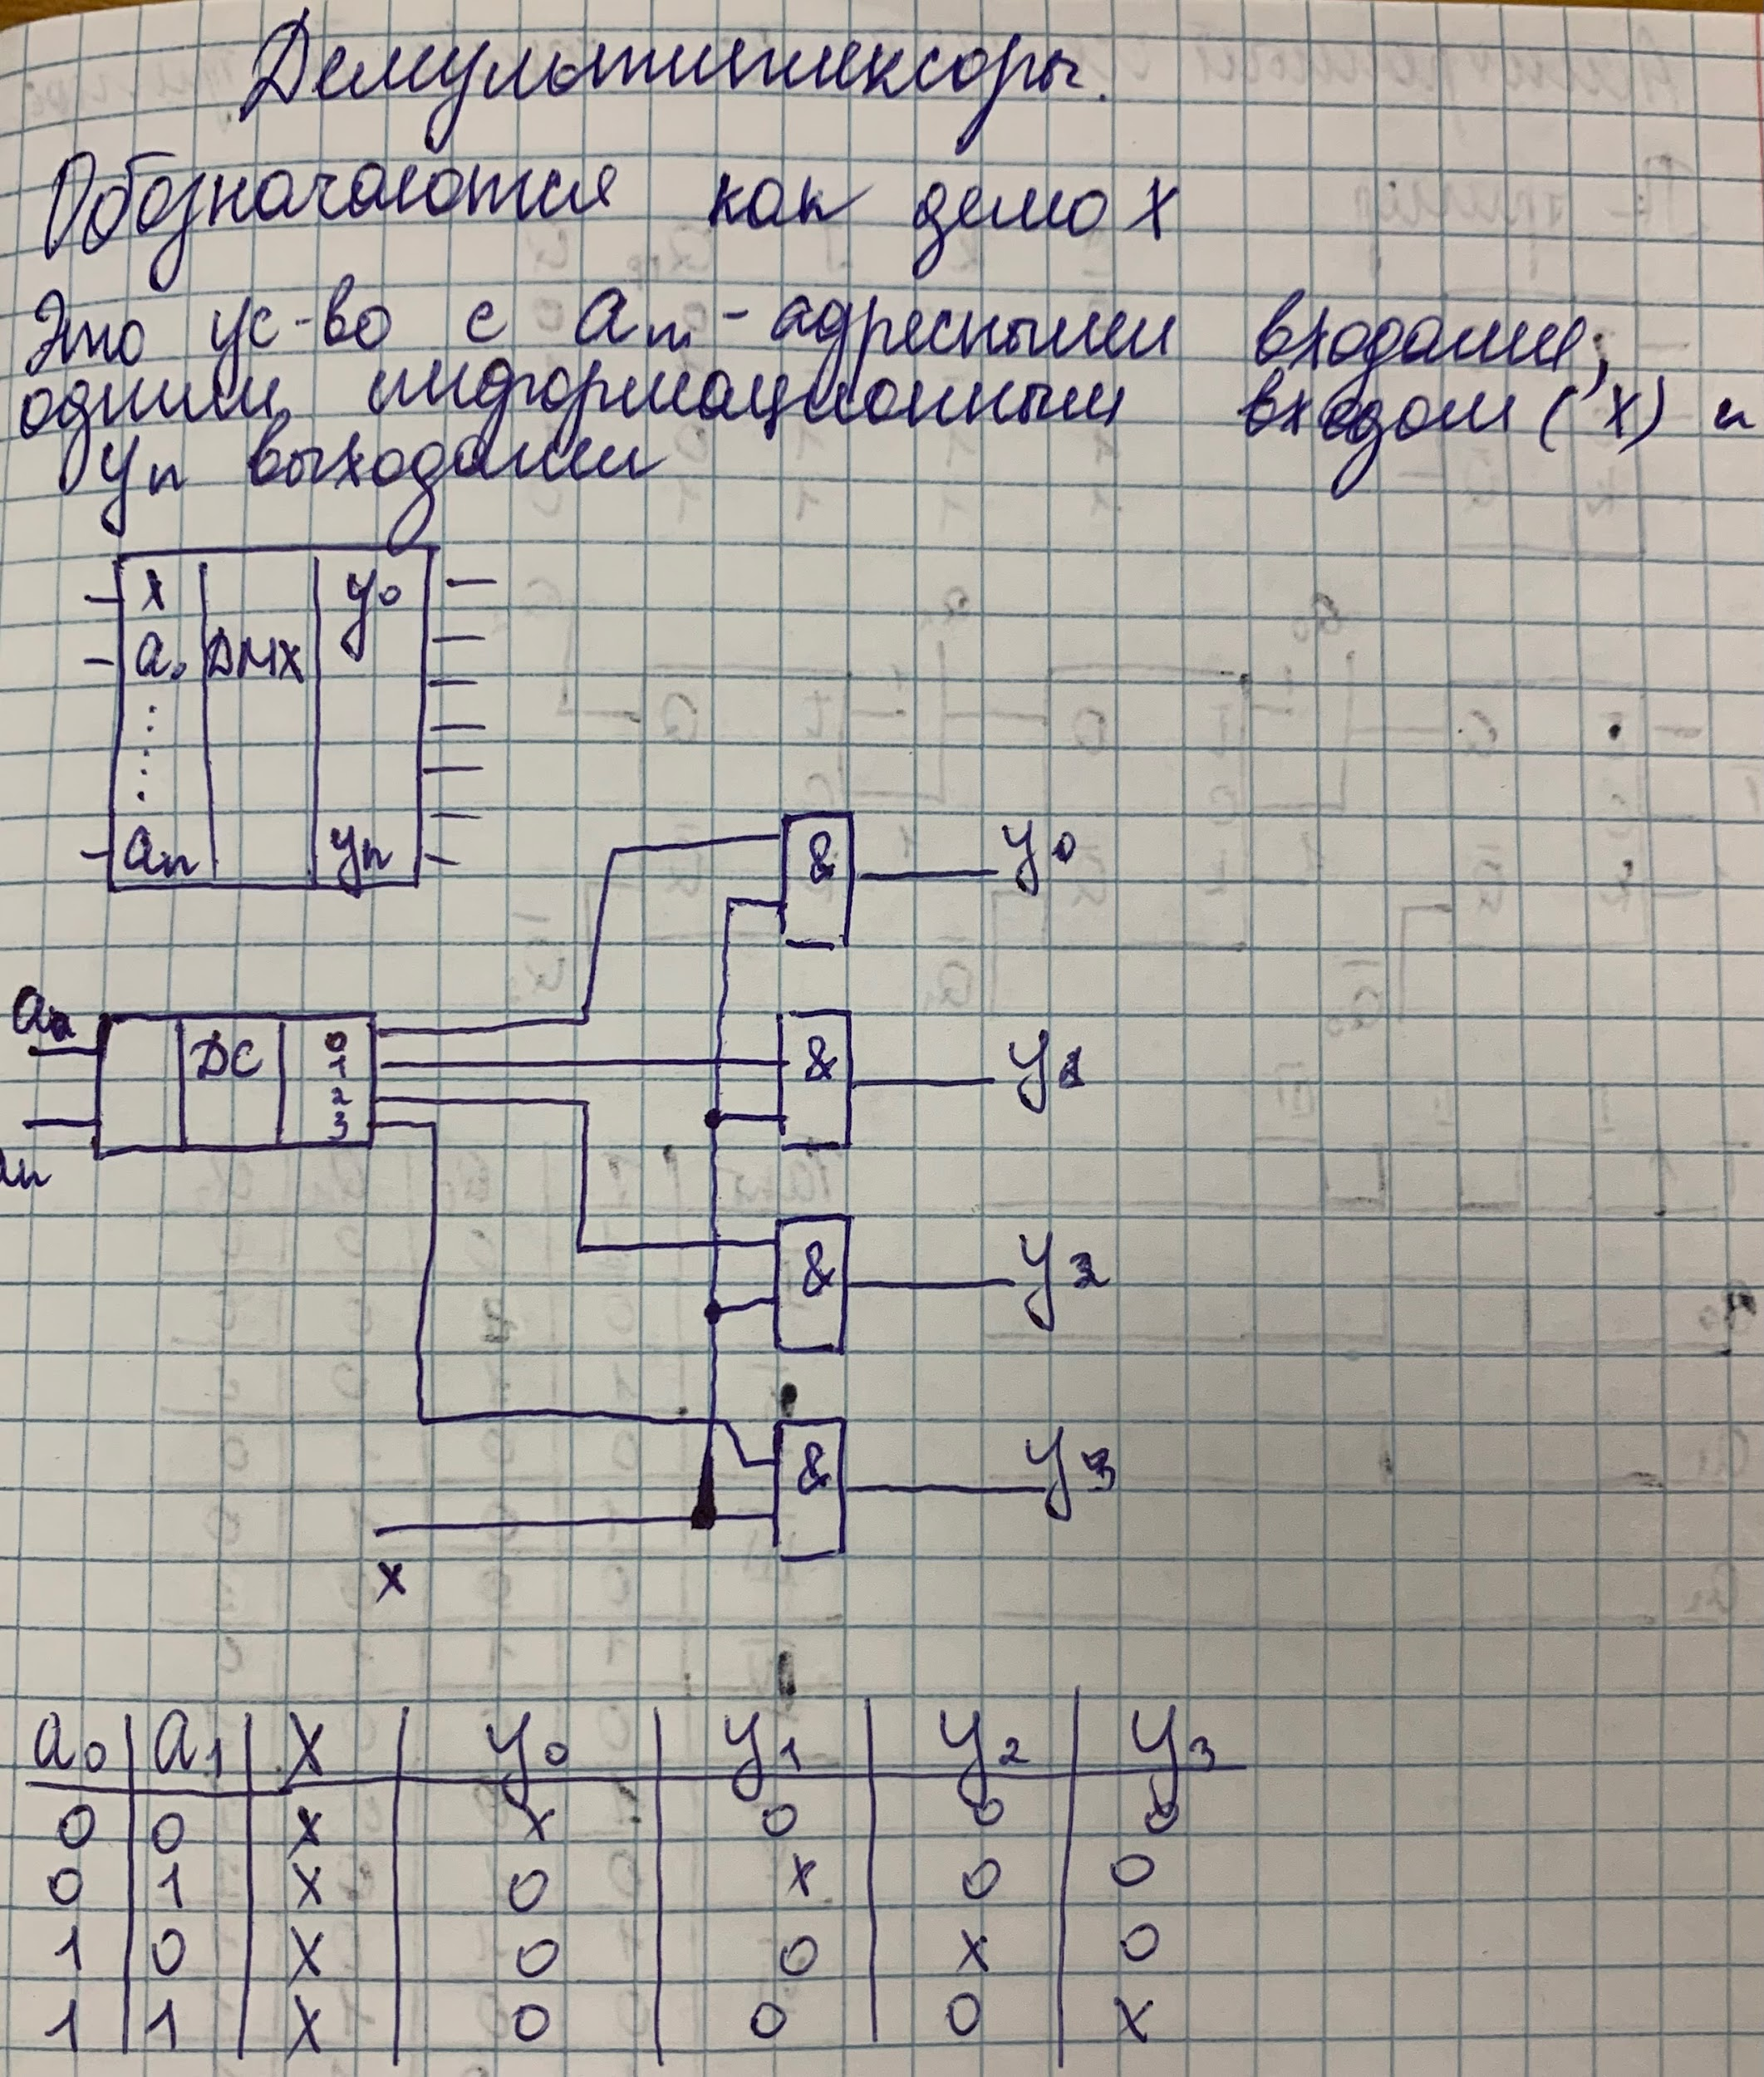 Демультиплексоры.
Обозначаются как демо X
Это ус-во с am - адресными входами,
одним информационным входом (X) и
yn выходами
X y0
a0 DMX
⋮
an yn
& y0
a0 DC 0
1
2
3
an
& y1
& y2
& y3
x
a0 a1 X y0 y1 y2 y3
0 0 x x 0 0 0
0 1 x 0 x 0 0
1 0 x 0 0 x 0
1 1 x 0 0 0 x